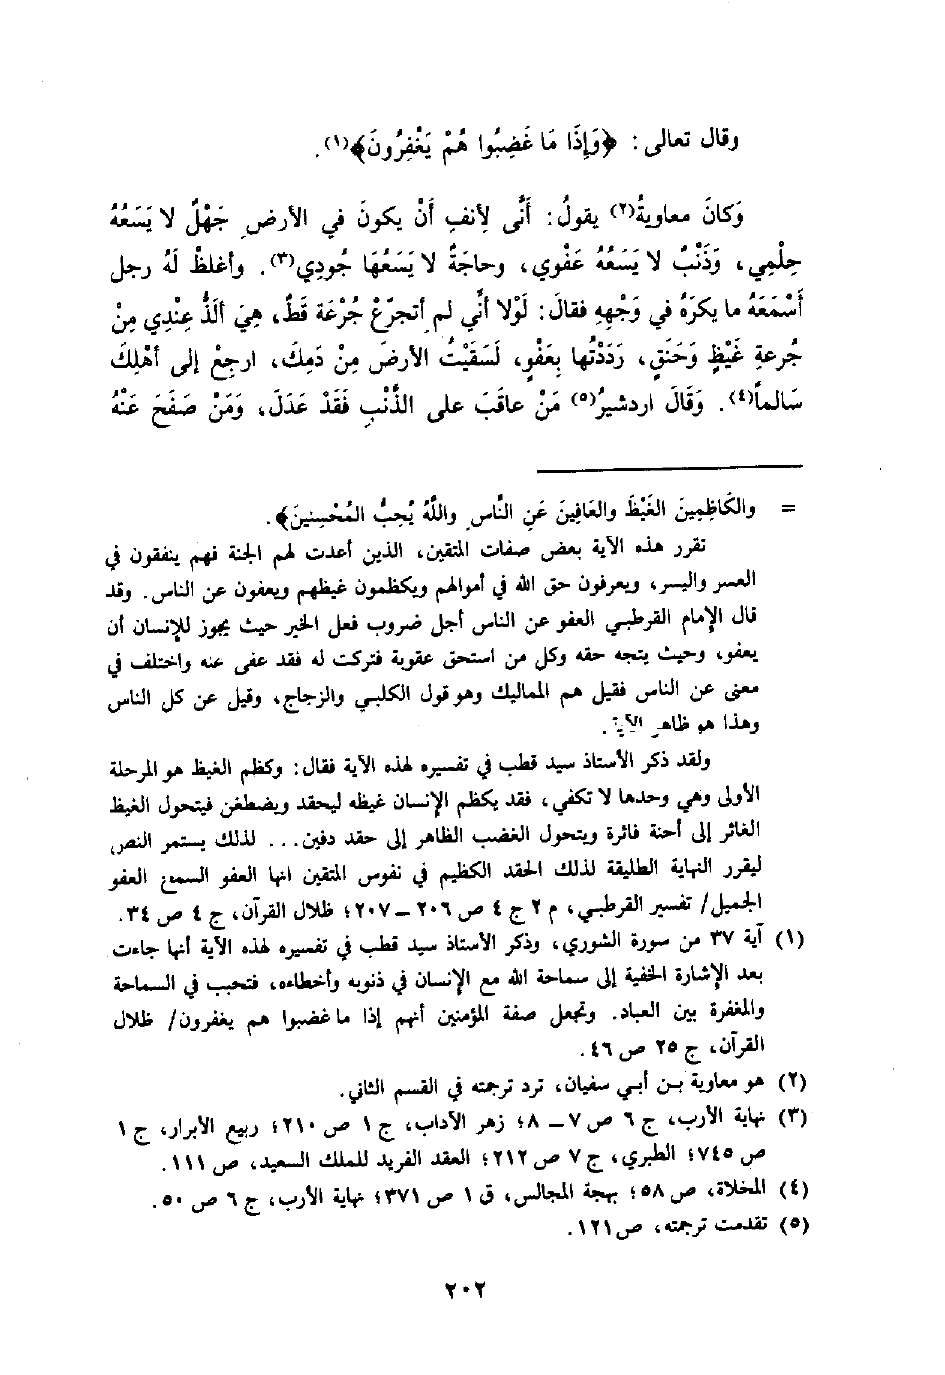 وقال تعالى: ﴿وَإِذَا مَا غَضِبُوا هُمْ يَغْفِرُونَ﴾(١).
وَكانَ معاويةُ(٢) يقولُ: أنِّى لآنفِ أنْ يكونَ في الأرضِ جَهْلٌ لا يَسَعُهُ
حِلْمِي، وَذَنْبٌ لا يَسَعُهُ عَفْوِي، وحاجَةٌ لا يَسَعُهَا جُودِي(٣). وأغلظْ لَهُ رجل
أَسْمَعَهُ ما يكرَهُ في وَجْهِهِ فقالَ: لَوْلا أنِّي لم أتجرّعْ جُرْعَة قَطّ، هِيَ ألَذُّ عِنْدِي مِنْ
جُرعةِ غَيْظٍ وَحَنَقٍ، رَدَدْتُها بِعَفْوٍ، لَسَقَيْتُ الأرضَ مِنْ دَمِكَ، ارجِعْ إلى أهْلِكَ
سَالماً(٤). وَقَالَ اردشيرُ(٥) مَنْ عاقَبَ على الذَّنْبِ فَقَدْ عَدَلَ، وَمَنْ صَفَحَ عَنْهُ
= والكَاظِمِينَ الغَيْظَ والعَافِينَ عَنِ النَّاسِ واللَّهُ يُحِبُّ المُحْسِنِينَ﴾.
تقرر هذه الآية بعض صفات المتقين، الذين أعدت لهم الجنة فهم ينفقون في
العسر واليسر، ويعرفون حق الله في أموالهم ويكظمون غيظهم ويعفون عن الناس. وقد
قال الإمام القرطبي العفو عن الناس أجل ضروب فعل الخير حيث يجوز للإنسان أن
يعفو، وحيث يتجه حقه وكل من استحق عقوبة فتركت له فقد عفى عنه واختلف في
معنى عن الناس فقيل هم المماليك وهو قول الكلبي والزجاج، وقيل عن كل الناس
وهذا هو ظاهر الآية.
ولقد ذكر الأستاذ سيد قطب في تفسيره لهذه الآية فقال: وكظم الغيظ هو المرحلة
الأولى وهي وحدها لا تكفي، فقد يكظم الإنسان غيظه ليحقد ويضطغن فيتحول الغيظ
الغائر إلى أحنة فائرة ويتحول الغضب الظاهر إلى حقد دفين... لذلك يستمر النص
ليقرر النهاية الطليقة لذلك الحقد الكظيم في نفوس المتقين انها العفو السمح العفو
الجميل/ تفسير القرطبي، م ٢ ج ٤ ص ٢٠٦ – ٢٠٧؛ ظلال القرآن، ج ٤ ص ٣٤.
(١) آية ٣٧ من سورة الشوري، وذكر الأستاذ سيد قطب في تفسيره لهذه الآية أنها جاءت
بعد الإشارة الخفية إلى سماحة الله مع الإنسان في ذنوبه وأخطاءه، فتحبب في السماحة
والمغفرة بين العباد. وتجعل صفة المؤمنين أنهم إذا ما غضبوا هم يغفرون/ ظلال
القرآن، ج ٢٥ ص ٤٦.
(٢) هو معاوية بن أبي سفيان، ترد ترجمته في القسم الثاني.
(٣) نهاية الأرب، ج ٦ ص ٧ – ٨؛ زهر الآداب، ج ١ ص ٢١٠؛ ربيع الأبرار، ج ١
ص ٧٤٥؛ الطبري، ج ٧ ص ٢١٢؛ العقد الفريد للملك السعيد، ص ١١١.
(٤) المخلاة، ص ٥٨؛ بهجة المجالس، ق ١ ص ٣٧١؛ نهاية الأرب، ج ٦ ص ٥٠.
(٥) تقدمت ترجمته، ص ١٢١.
٢٠٢